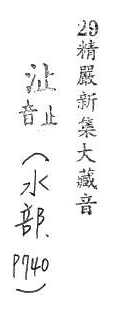 29精嚴新集大藏音
沚音止(水部、P740)